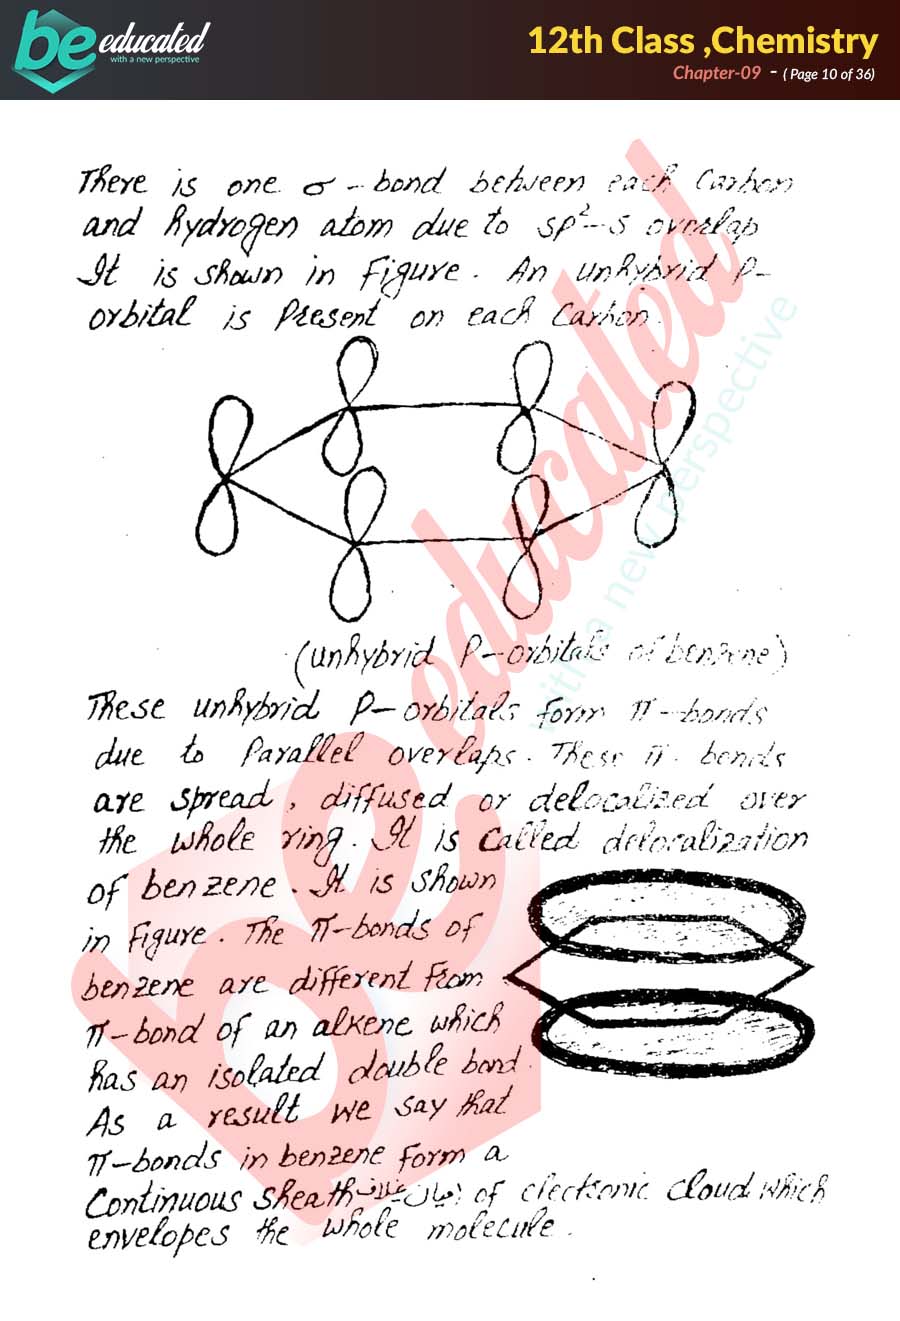 be educated
with a new perspective
12th Class ,Chemistry
Chapter-09 - ( Page 10 of 36)
There is one σ-bond between each Carbon
and hydrogen atom due to sp²-s overlap
It is shown in Figure. An unhybrid P-
orbital is Present on each Carbon.
(unhybrid P-orbitals of benzene)
These unhybrid P-orbitals form π-bonds
due to Parallel overlaps. These π-bonds
are spread, diffused or delocalized over
the whole ring. It is called delocalization
of benzene. It is shown
in Figure. The π-bonds of
benzene are different from
π-bond of an alkene which
has an isolated double bond.
As a result we say that
π-bonds in benzene form a
Continuous sheath of electronic cloud which
envelopes the whole molecule.
be educated
with a new perspective